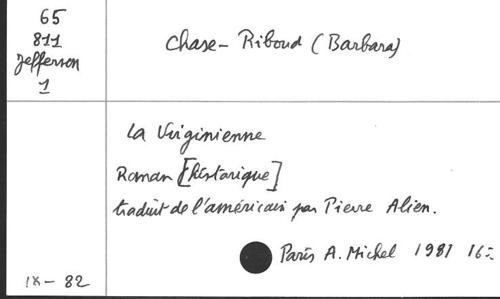 65
811
Jefferson
1
Chase-Riboud (Barbara)
La Virginienne
Roman [historique]
traduit de l'américain par Pierre Alien.
Paris A. Michel 1981 16=
IX - 82